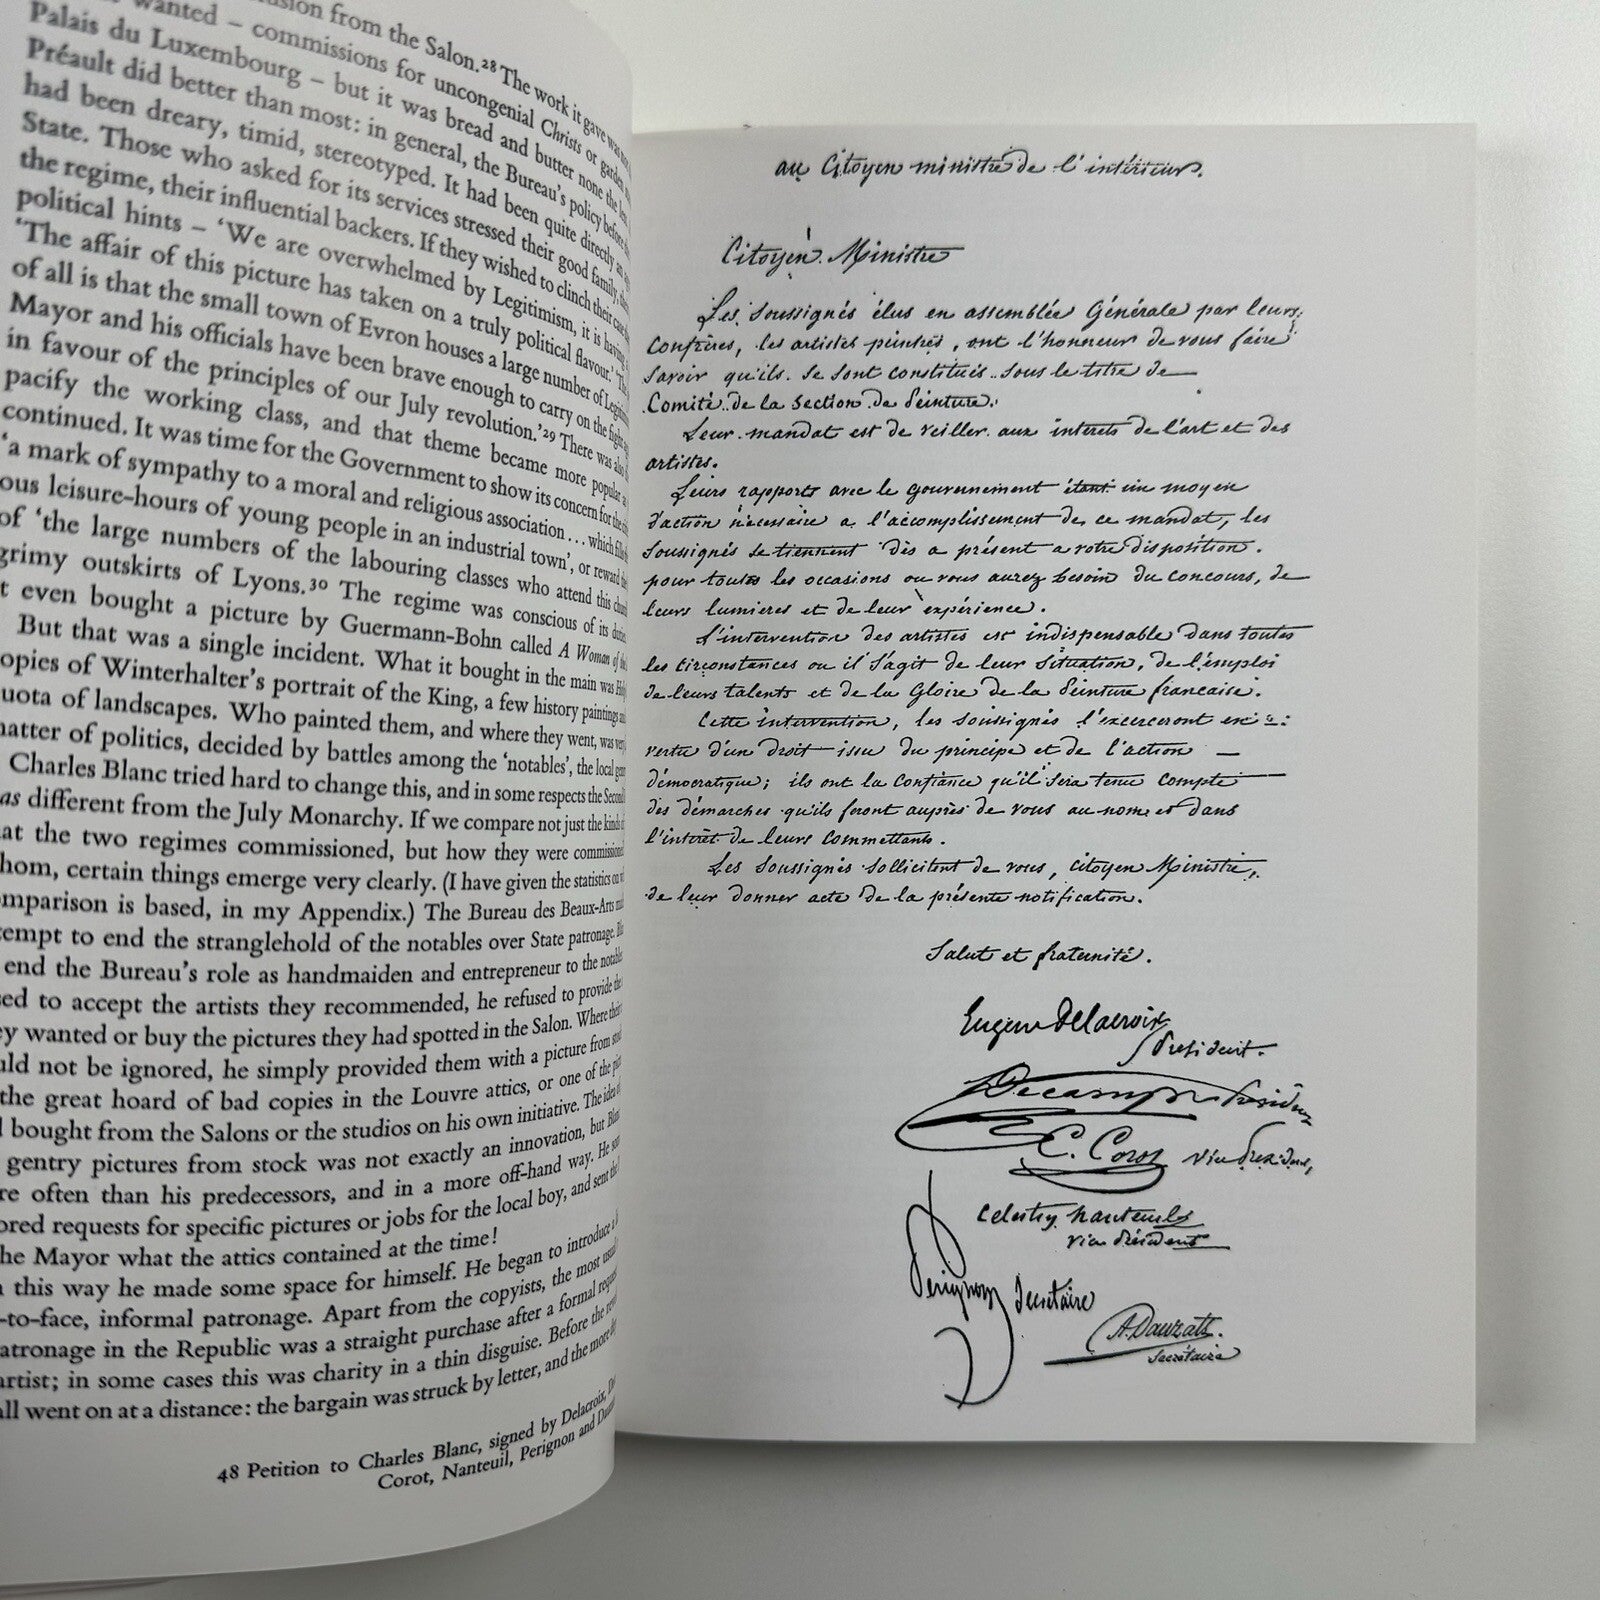 usion from the Salon.²⁸ The work it gave was not
wanted – commissions for uncongenial Christs or garden
Palais du Luxembourg – but it was bread and butter none the less.
Préault did better than most: in general, the Bureau's policy before
had been dreary, timid, stereotyped. It had been quite directly an
State. Those who asked for its services stressed their good family, their
the regime, their influential backers. If they wished to clinch their case
political hints – ‘We are overwhelmed by Legitimism, it is having
‘The affair of this picture has taken on a truly political flavour.’
of all is that the small town of Evron houses a large number of
Mayor and his officials have been brave enough to carry on the fight
in favour of the principles of our July revolution.’²⁹ There was also
pacify the working class, and that theme became more popular as
continued. It was time for the Government to show its concern for the
‘a mark of sympathy to a moral and religious association . . . which
ous leisure-hours of young people in an industrial town’, or reward
of ‘the large numbers of the labouring classes who attend this
grimy outskirts of Lyons.³⁰ The regime was conscious of its
t even bought a picture by Guermann-Bohn called A Woman of the
But that was a single incident. What it bought in the main was
opies of Winterhalter's portrait of the King, a few history paintings
uota of landscapes. Who painted them, and where they went, was
atter of politics, decided by battles among the ‘notables’, the local
Charles Blanc tried hard to change this, and in some respects the Second
as different from the July Monarchy. If we compare not just the kinds
at the two regimes commissioned, but how they were commissioned
hom, certain things emerge very clearly. (I have given the statistics on
omparison is based, in my Appendix.) The Bureau des Beaux-Arts
tempt to end the stranglehold of the notables over State patronage.
end the Bureau's role as handmaiden and entrepreneur to the notables
sed to accept the artists they recommended, he refused to provide the
ey wanted or buy the pictures they had spotted in the Salon. Where
uld not be ignored, he simply provided them with a picture from
the great hoard of bad copies in the Louvre attics, or one of the
d bought from the Salons or the studios on his own initiative. The idea
gentry pictures from stock was not exactly an innovation, but
re often than his predecessors, and in a more off-hand way. He
ored requests for specific pictures or jobs for the local boy, and sent
he Mayor what the attics contained at the time!
n this way he made some space for himself. He began to introduce
-to-face, informal patronage. Apart from the copyists, the most
atronage in the Republic was a straight purchase after a formal
artist; in some cases this was charity in a thin disguise. Before the
all went on at a distance: the bargain was struck by letter, and the more
48 Petition to Charles Blanc, signed by Delacroix,
Corot, Nanteuil, Perignon and
au Citoyen ministre de l'intérieur.
Citoyen Ministre
Les Soussignés élus en assemblée Générale par leurs
Confrères, les artistes peintres, ont l'honneur de vous faire
savoir qu'ils se sont constitués sous le titre de
Comité de la Section de Peinture.
Leur mandat est de veiller aux intérets de l'art et des
artistes.
Leurs rapports avec le gouvernement étant un moyen
d'action nécessaire a l'accomplissement de ce mandat, les
soussignés se tiennent dès a présent a votre disposition
pour toutes les occasions ou vous aurez besoin du concours, de
leurs lumieres et de leur expérience.
L'intervention des artistes est indispensable dans toutes
les circonstances ou il s'agit de leur situation, de l'emploi
de leurs talents et de la Gloire de la Peinture francaise.
Cette intervention, les soussignés l'exerceront en
vertu d'un droit issu du principe et de l'action
démocratique; ils ont la confiance qu'il sera tenu compte
des démarches qu'ils feront auprès de vous au nom et dans
l'intérêt de leurs commettants.
Les Soussignés sollicitent de vous, Citoyen Ministre,
de leur donner acte de la présente notification.
Salut et fraternité.
Eugene Delacroix
President.
Decamps
C. Corot vice President
Celestin Nanteuil
vice President
Perignon Secrétaire
A. Dauzats
Secrétaire